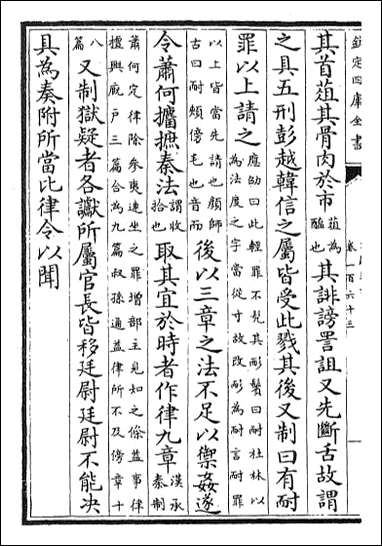 欽定四庫全書
卷一百六十三
其首菹其骨肉於市菹為醢也其誹謗詈詛又先斷舌故謂
之具五刑彭越韓信之屬皆受此戮其後又制曰有耐
罪以上請之應劭曰此輕罪不髠其耏鬢曰耐杜林以為法度之字當從寸故改耏為耐言耐罪
以上皆當先請也顔師古曰耐頰傍毛也音而後以三章之法不足以禦姦遂
令蕭何攟摭秦法謂收拾也取其宜於時者作律九章漢承秦制
蕭何定律除參夷連坐之罪增部主見知之條益事律擅興廄戶三篇合為九篇叔孫通益律所不及傍章十
八篇又制獄疑者各讞所屬官長皆移廷尉廷尉不能决
具為奏附所當比律令以聞